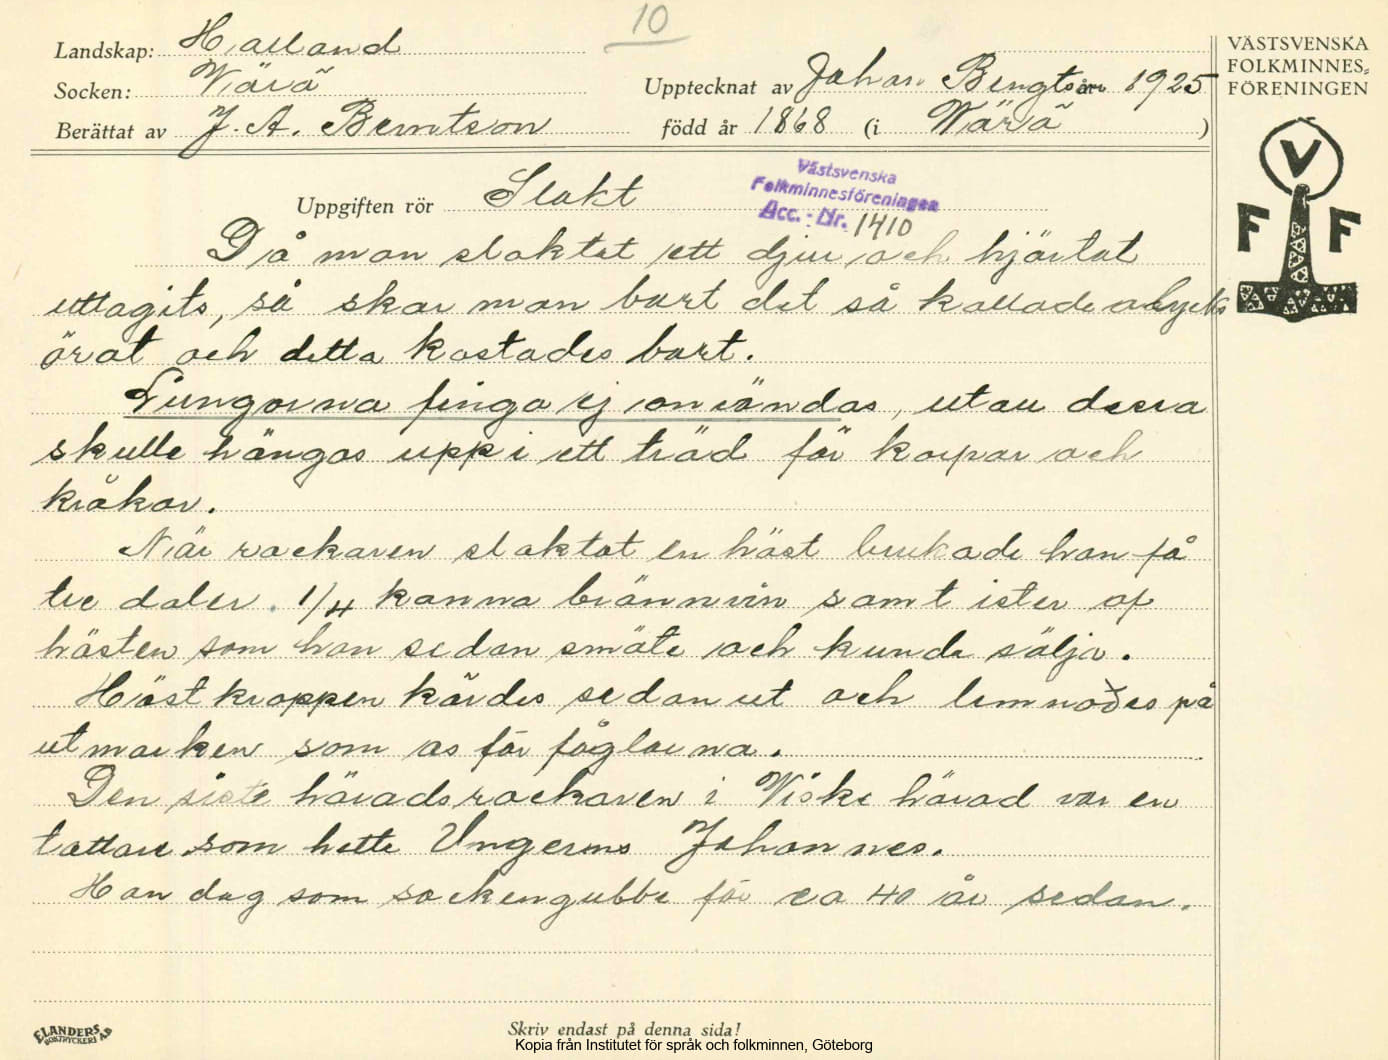 10
Landskap: Halland
Socken: Wärö
Upptecknat av Johan Bengtson 1925
Berättat av J. A. Berntson
född år 1868 (i Wärö )
VÄSTSVENSKA
FOLKMINNES=
FÖRENINGEN
V
F F
Uppgiften rör Slakt
Västsvenska
Folkminnesföreningen
Acc. - Nr. 1410
Då man slaktat ett djur och hjärtat
uttagits, så skar man bort det så kallade olycks
örat och detta kastades bort.
Lungorna fingo ej användas, utan dessa
skulle hängas upp i ett träd för korpar och
kråkor.
När rackaren slaktat en häst brukade han få
tre daler. 1/4 kanna brännvin samt ister af
hästen som han sedan smäte och kunde sälja.
Hästkroppen kördes sedan ut och lemnades på
utmarken som as för foglarna.
Den siste häradsrackaren i Viske härad var en
tattare som hette Ungerns Johannes.
Han dog som sockengubbe för ca 40 år sedan.
ELANDERS
BOKTRYCKERI AB
Skriv endast på denna sida!
Kopia från Institutet för språk och folkminnen, Göteborg